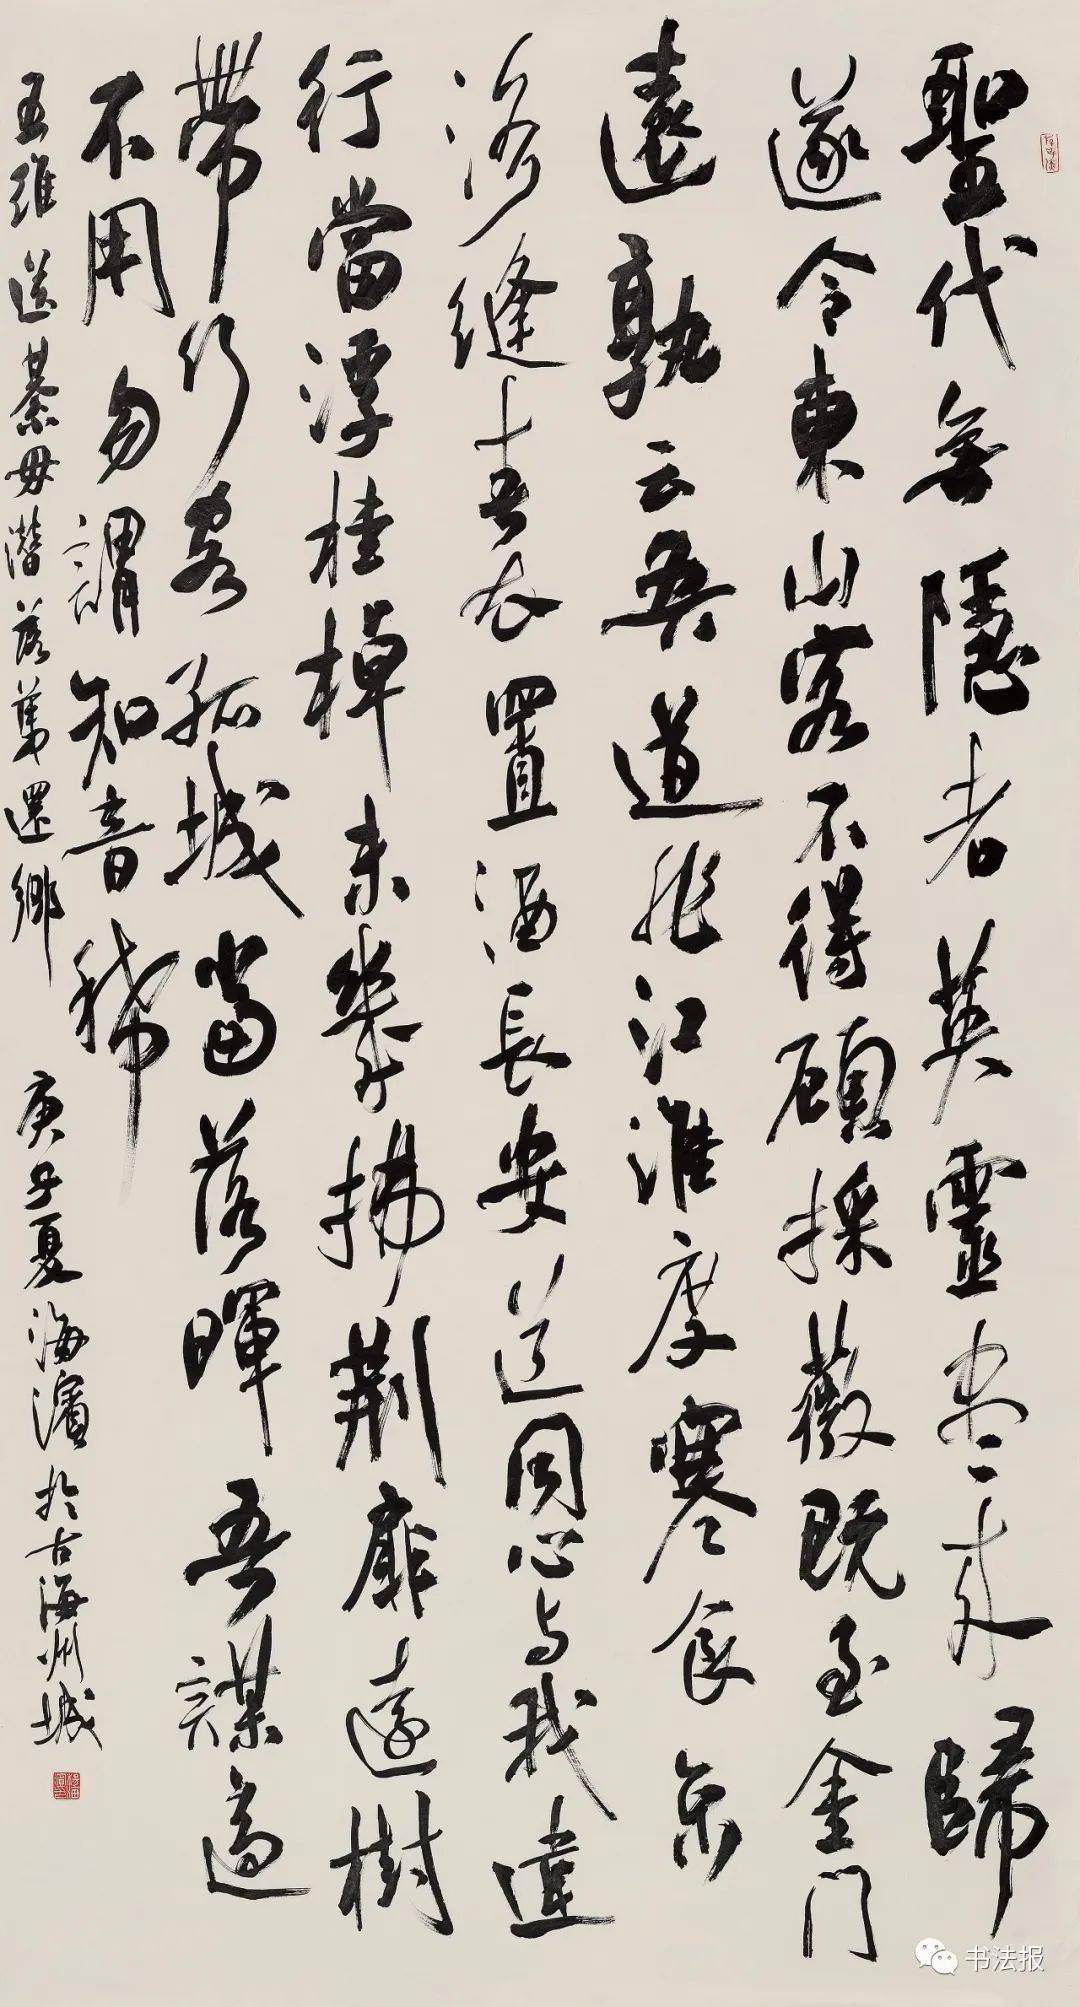 聖代無隱者英靈盡来歸
遂令東山客不得顧採薇既至金門
遠孰云吾道非江淮度寒食京
洛縫春衣置酒長安道同心与我違
行當浮桂棹未幾拂荆扉遠樹
帶行客孤城當落暉吾謀適
不用勿謂知音稀
王維送綦毋潜落第還鄉
庚子夏海濱於古海州城
书法报